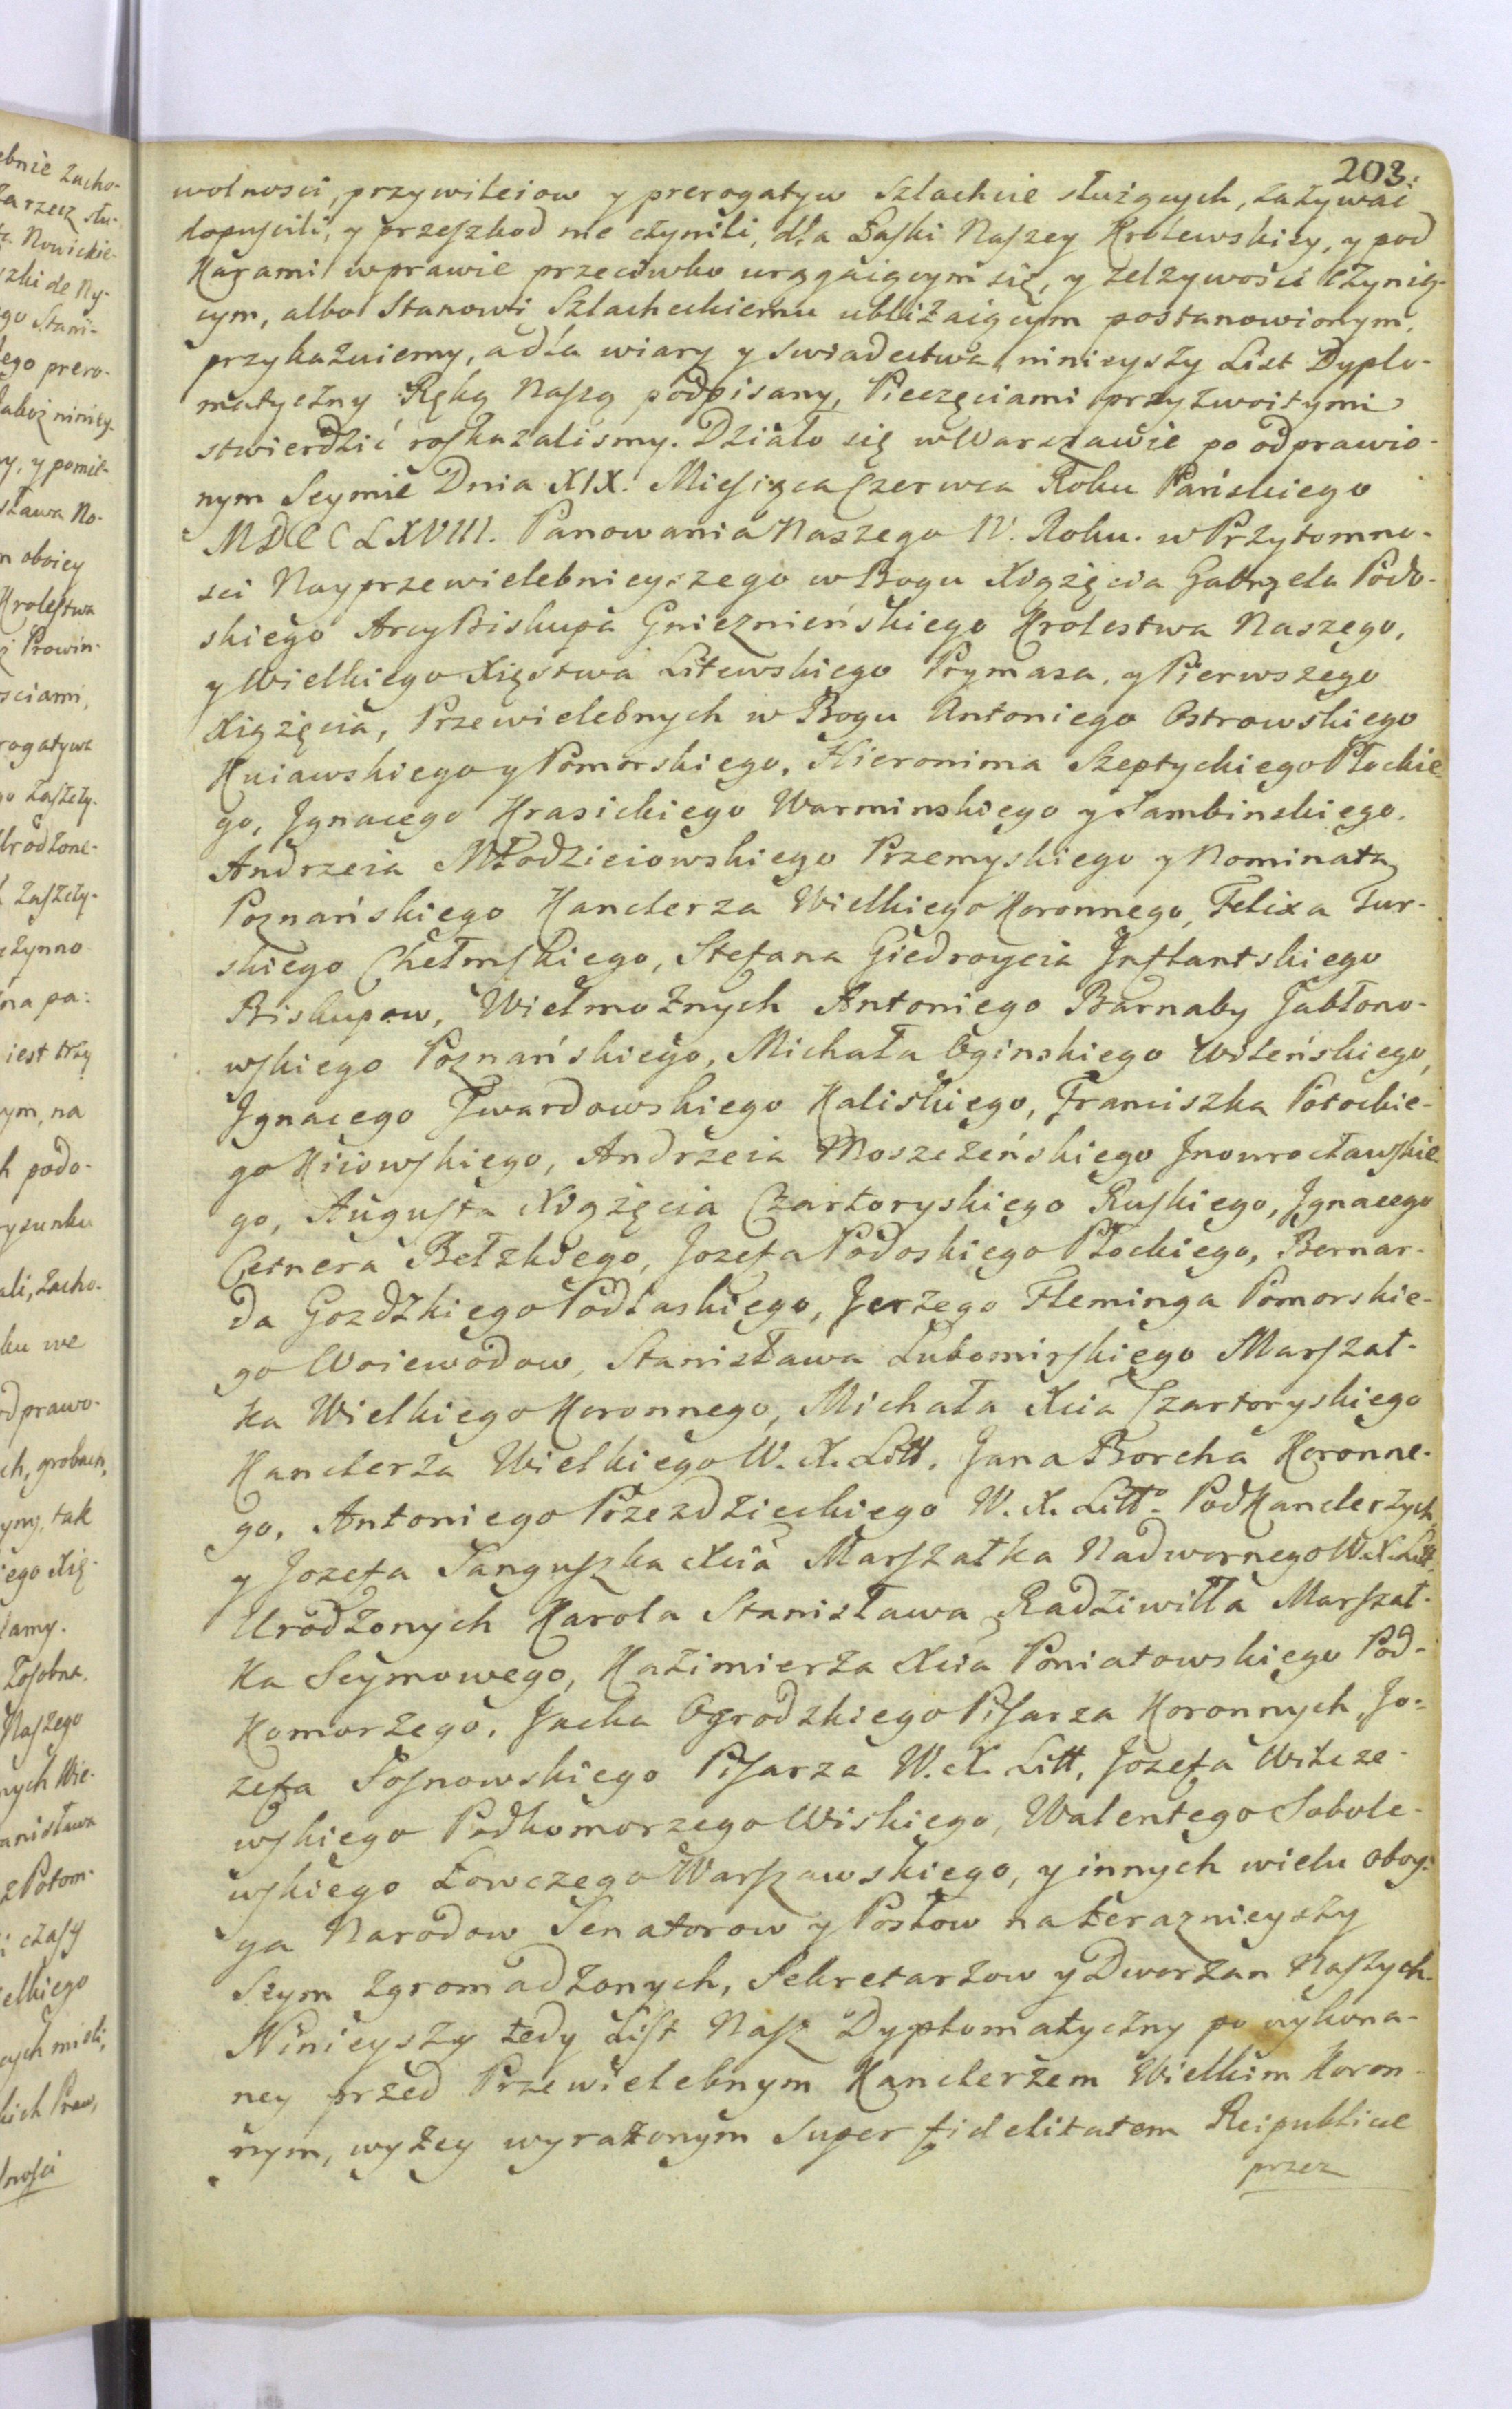 203.
wolnosci, przywileiow y prerogatyw Szlachcie służących, zażywać
dopuscili, y przeszkod nie czynili, dla Łaski Naszey Krolewskiey, y pod
Karami wprawie przeciwko urągaiącym się, y zelzywości czynią-
cym, albo Stanowi Szlacheckiemu ubliżaiącym postanowionym,
przykazuiemy, a dla wiary y swiadectwa, ninieyszy List Dyplo-
matyczny Ręką Naszą podpisany, Pieczęciami przyzwoitymi
stwierdzić roskazalismy. Działo się w Warszawie po odprawio-
nym Seymie Dnia XIX. Miesiąca Czerwca Roku Pańskiego
MDCCLXVIII. Panowania Naszego IV. Roku. w Przytomno-
sci Nayprzewielebnieyszego w Bogu Xiążęcia Gabryela Podo-
skiego Arcy Biskupa Gnieznieńskiego Krolestwa Naszego,
y Wielkiego Xięstwa Litewskiego Prymasa, y Pierwszego
Xiążęcia, Przewielebnych w Bogu Antoniego Ostrowskiego
Kuiawskiego y Pomorskiego, Hieronima Szeptyckiego Płockie-
go, Jgnacego Krasickiego Warminskiego y Sambinskiego,
Andrzeia Młodzieiowskiego Przemyskiego y Nominata
Poznańskiego Kanclerza Wielkiego Koronnego, Felixa Tur-
skiego Chełmskiego, Stefana Giedroycia Jnflantskiego
Biskupow, Wielmożnych Antoniego Barnaby Jabłono-
wskiego Poznańskiego, Michała Oginskiego Wileńskiego,
Jgnacego Twardowskiego Kaliskiego, Franciszka Potockie-
go Kiiowskiego, Andrzeia Moszczeńskiego Jnowrocławskie
go, Augusta Xiążęcia Czartoryskiego Ruskiego, Jgnacego
Cetnera Bełzkiego, Jozefa Podoskiego Płockiego, Bernar-
da Gozdzkiego Podlaskiego, Jerzego Fleminga Pomorskie-
go Woiewodow, Stanisława Lubomirskiego Marszał-
ka Wielkiego Koronnego, Michała Xcia Czartoryskiego
Kanclerza Wielkiego W. X. Litt. Jana Borcha Koronne-
go, Antoniego Przezdzieckiego W. X. Litto Podkanclerzych
y Jozefa Sanguszka Xcia Marszałka Nadwornego W. X. Litt.
Urodzonych Karola Stanisława Radziwiłła Marszał-
ka Seymowego, Kazimierza Xcia Poniatowskiego Pod-
komorzego, Jacka Ogrodzkiego Pisarza Koronnych, Jo-
zefa Sosnowskiego Pisarza W. X. Litt, Jozefa Wilcze-
wskiego Podkomorzego Wiskiego, Walentego Sobole-
wskiego Łowczego Warszawskiego, y innych wielu oboy-
ga Narodow Senatorow y Posłow na teraznieyszy
Seym zgromadzonych, Sekretarzow y Dworzan Naszych.
Ninieyszy tedy List Nasz Dyplomatyczny po wykona-
ney przed Przewielebnym Kanclerzem Wielkim Koron-
nym, wyżey wyrażonym Super fidelitatem Reipublicae
przez